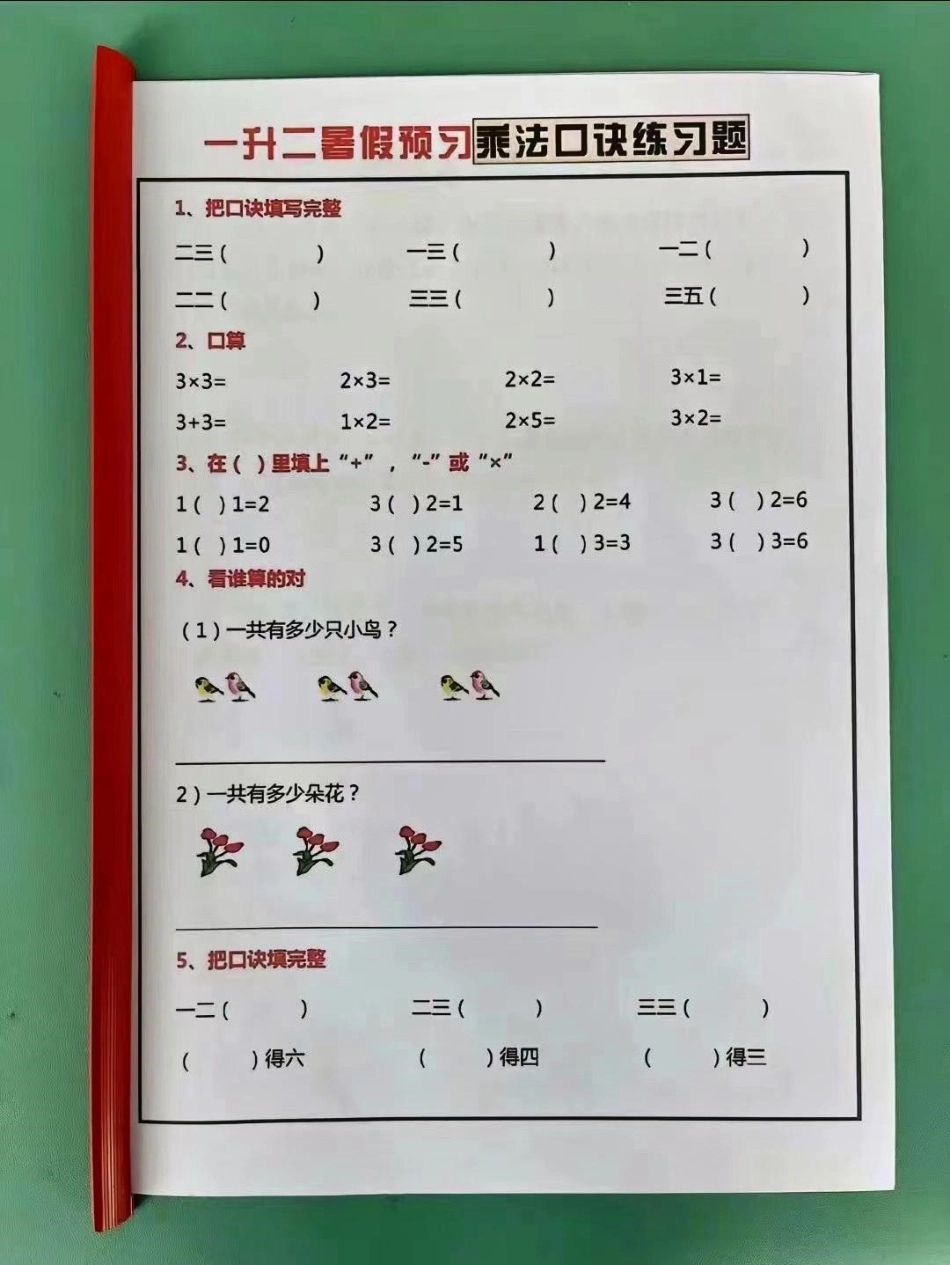 一升二暑假预习乘法口诀练习题
1、把口诀填写完整
二三（ ） 一三（ ） 一二（ ）
二二（ ） 三三（ ） 三五（ ）
2、口算
3×3= 2×3= 2×2= 3×1=
3+3= 1×2= 2×5= 3×2=
3、在（ ）里填上“+”，“-”或“×”
1（ ）1=2 3（ ）2=1 2（ ）2=4 3（ ）2=6
1（ ）1=0 3（ ）2=5 1（ ）3=3 3（ ）3=6
4、看谁算的对
（1）一共有多少只小鸟？
2）一共有多少朵花？
5、把口诀填完整
一二（ ） 二三（ ） 三三（ ）
（ ）得六 （ ）得四 （ ）得三